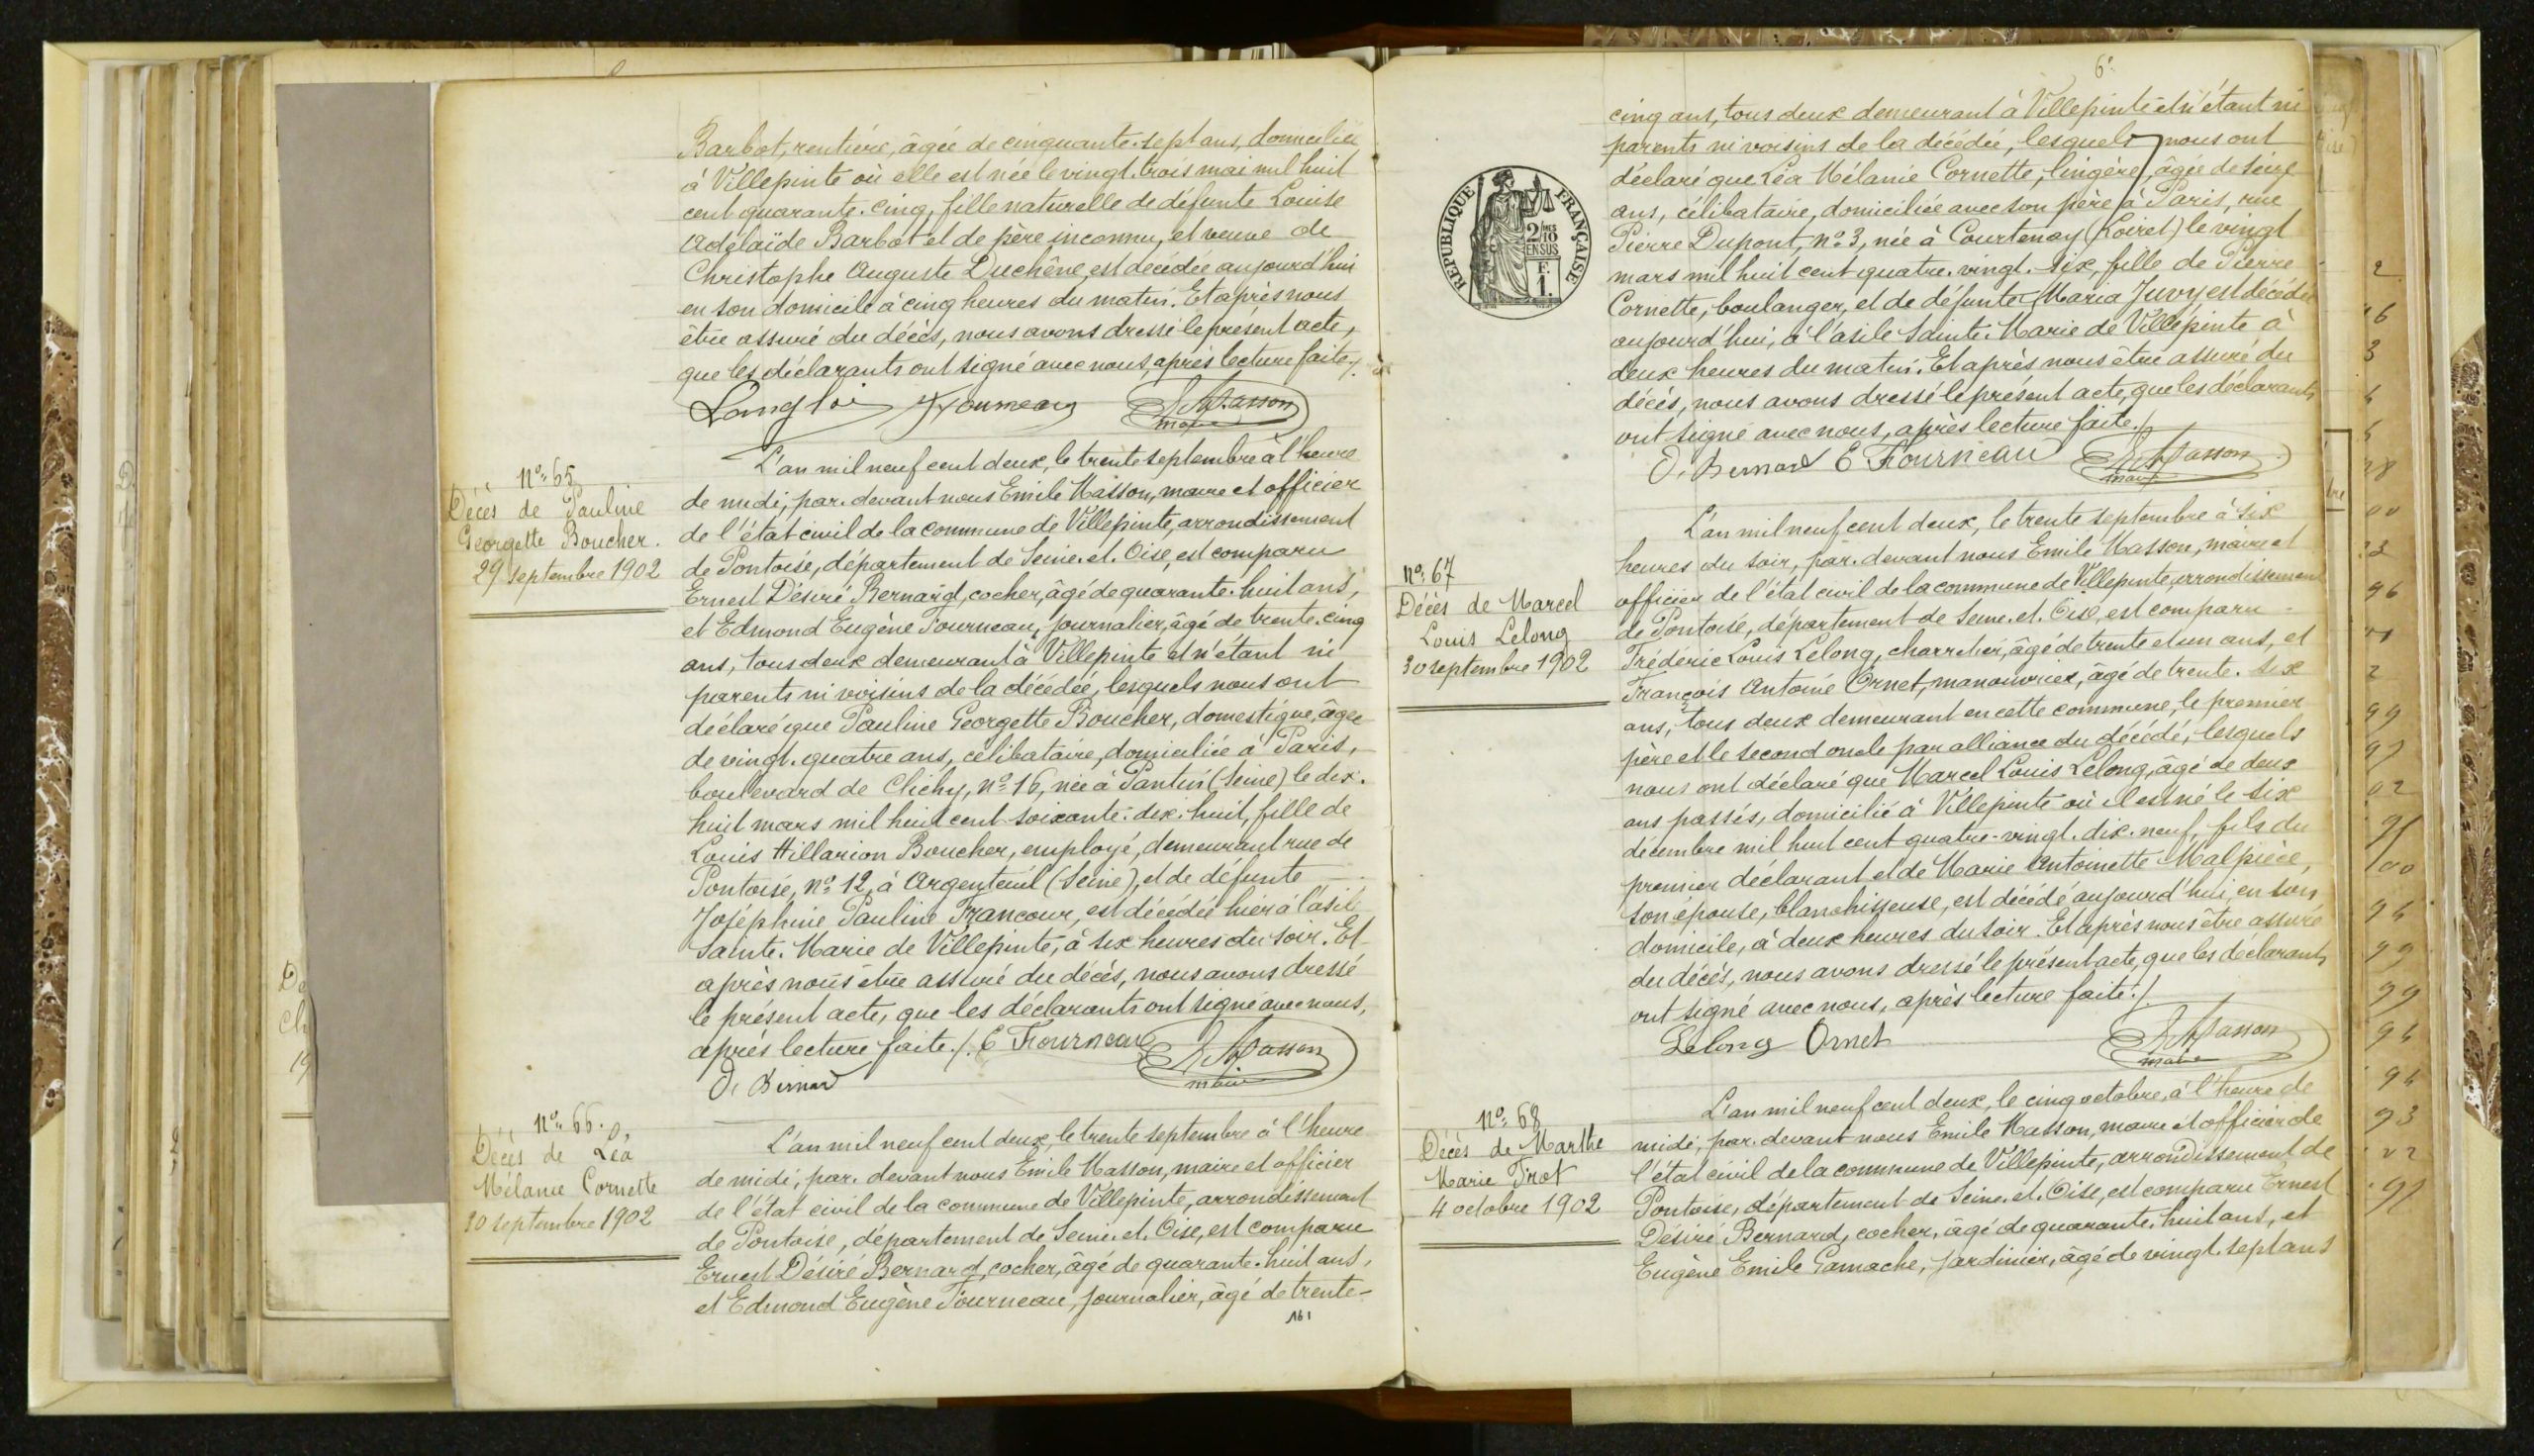 Barbot, rentière, âgée de cinquante-sept ans, domiciliée
à Villepinte où elle est née le vingt-trois mai mil huit
cent quarante-cinq, fille naturelle de défunte Louise
Adélaïde Barbot et de père inconnu, et veuve de
Christophe Auguste Duchêne, est décédée aujourd'hui
en son domicile à cinq heures du matin. Et après nous
être assuré du décès, nous avons dressé le présent acte,
que les déclarants ont signé avec nous, après lecture faite./.
Langlois Fourneau E Masson
maire
N° 65
Décès de Pauline
Georgette Boucher.
29 septembre 1902
L'an mil neuf cent deux, le trente septembre à l'heure
de midi, par-devant nous Emile Masson, maire et officier
de l'état civil de la commune de Villepinte, arrondissement
de Pontoise, département de Seine-et-Oise, est comparu
Ernest Désiré Bernard, cocher, âgé de quarante-huit ans,
et Edmond Eugène Fourneau, journalier, âgé de trente-cinq
ans, tous deux demeurant à Villepinte et n'étant ni
parents ni voisins de la décédée, lesquels nous ont
déclaré que Pauline Georgette Boucher, domestique, âgée
de vingt-quatre ans, célibataire, domiciliée à Paris,
boulevard de Clichy, n° 16, née à Pantin (Seine) le dix-
huit mars mil huit cent soixante-dix-huit, fille de
Louis Hillarion Boucher, employé, demeurant rue de
Pontoise, n° 12, à Argenteuil (Seine), et de défunte
Joséphine Pauline Francour, est décédée hier à l'asile
Sainte-Marie de Villepinte, à six heures du soir. Et
après nous être assuré du décès, nous avons dressé
le présent acte, que les déclarants ont signé avec nous,
après lecture faite./. E Fourneau E Masson
D. Bernard maire
N° 66.
Décès de Léa
Mélanie Cornette
30 septembre 1902
L'an mil neuf cent deux, le trente septembre à l'heure
de midi, par-devant nous Emile Masson, maire et officier
de l'état civil de la commune de Villepinte, arrondissement
de Pontoise, département de Seine-et-Oise, est comparu
Ernest Désiré Bernard, cocher, âgé de quarante-huit ans,
et Edmond Eugène Fourneau, journalier, âgé de trente-
161
cinq ans, tous deux demeurant à Villepinte et n'étant ni
parents ni voisins de la décédée, lesquels nous ont
déclaré que Léa Mélanie Cornette, lingère, âgée de seize
ans, célibataire, domiciliée avec son père à Paris, rue
Pierre Dupont, n° 3, née à Courtenay (Loiret) le vingt
mars mil huit cent quatre-vingt-six, fille de Pierre
Cornette, boulanger, et de défunte Maria Juvy est décédée
aujourd'hui, à l'asile Sainte-Marie de Villepinte à
deux heures du matin. Et après nous être assuré du
décès, nous avons dressé le présent acte, que les déclarants
ont signé avec nous, après lecture faite./.
D. Bernard E Fourneau E Masson
maire
REPUBLIQUE FRANÇAISE
2/10
EN SUS
F.
1.
N° 67
Décès de Marcel
Louis Lelong
30 septembre 1902
L'an mil neuf cent deux, le trente septembre à six
heures du soir, par-devant nous Emile Masson, maire et
officier de l'état civil de la commune de Villepinte, arrondissement
de Pontoise, département de Seine-et-Oise, est comparu
Frédéric Louis Lelong, charretier, âgé de trente et un ans, et
François Antoine Ornet, manouvrier, âgé de trente-six
ans, tous deux demeurant en cette commune, le premier
père et le second oncle par alliance du décédé, lesquels
nous ont déclaré que Marcel Louis Lelong, âgé de deux
ans passés, domicilié à Villepinte où il est né le six
décembre mil huit cent quatre-vingt-dix-neuf, fils du
premier déclarant et de Marie Antoinette Malpièce,
son épouse, blanchisseuse, est décédé aujourd'hui, en son
domicile, à deux heures du soir. Et après nous être assuré
du décès, nous avons dressé le présent acte, que les déclarants
ont signé avec nous, après lecture faite./.
Lelong Ornet E Masson
maire
N° 68
Décès de Marthe
Marie Tirot
4 octobre 1902
L'an mil neuf cent deux, le cinq octobre, à l'heure de
midi, par-devant nous Emile Masson, maire et officier de
l'état civil de la commune de Villepinte, arrondissement de
Pontoise, département de Seine-et-Oise, est comparu Ernest
Désiré Bernard, cocher, âgé de quarante-huit ans, et
Eugène Emile Gamache, jardinier, âgé de vingt-sept ans